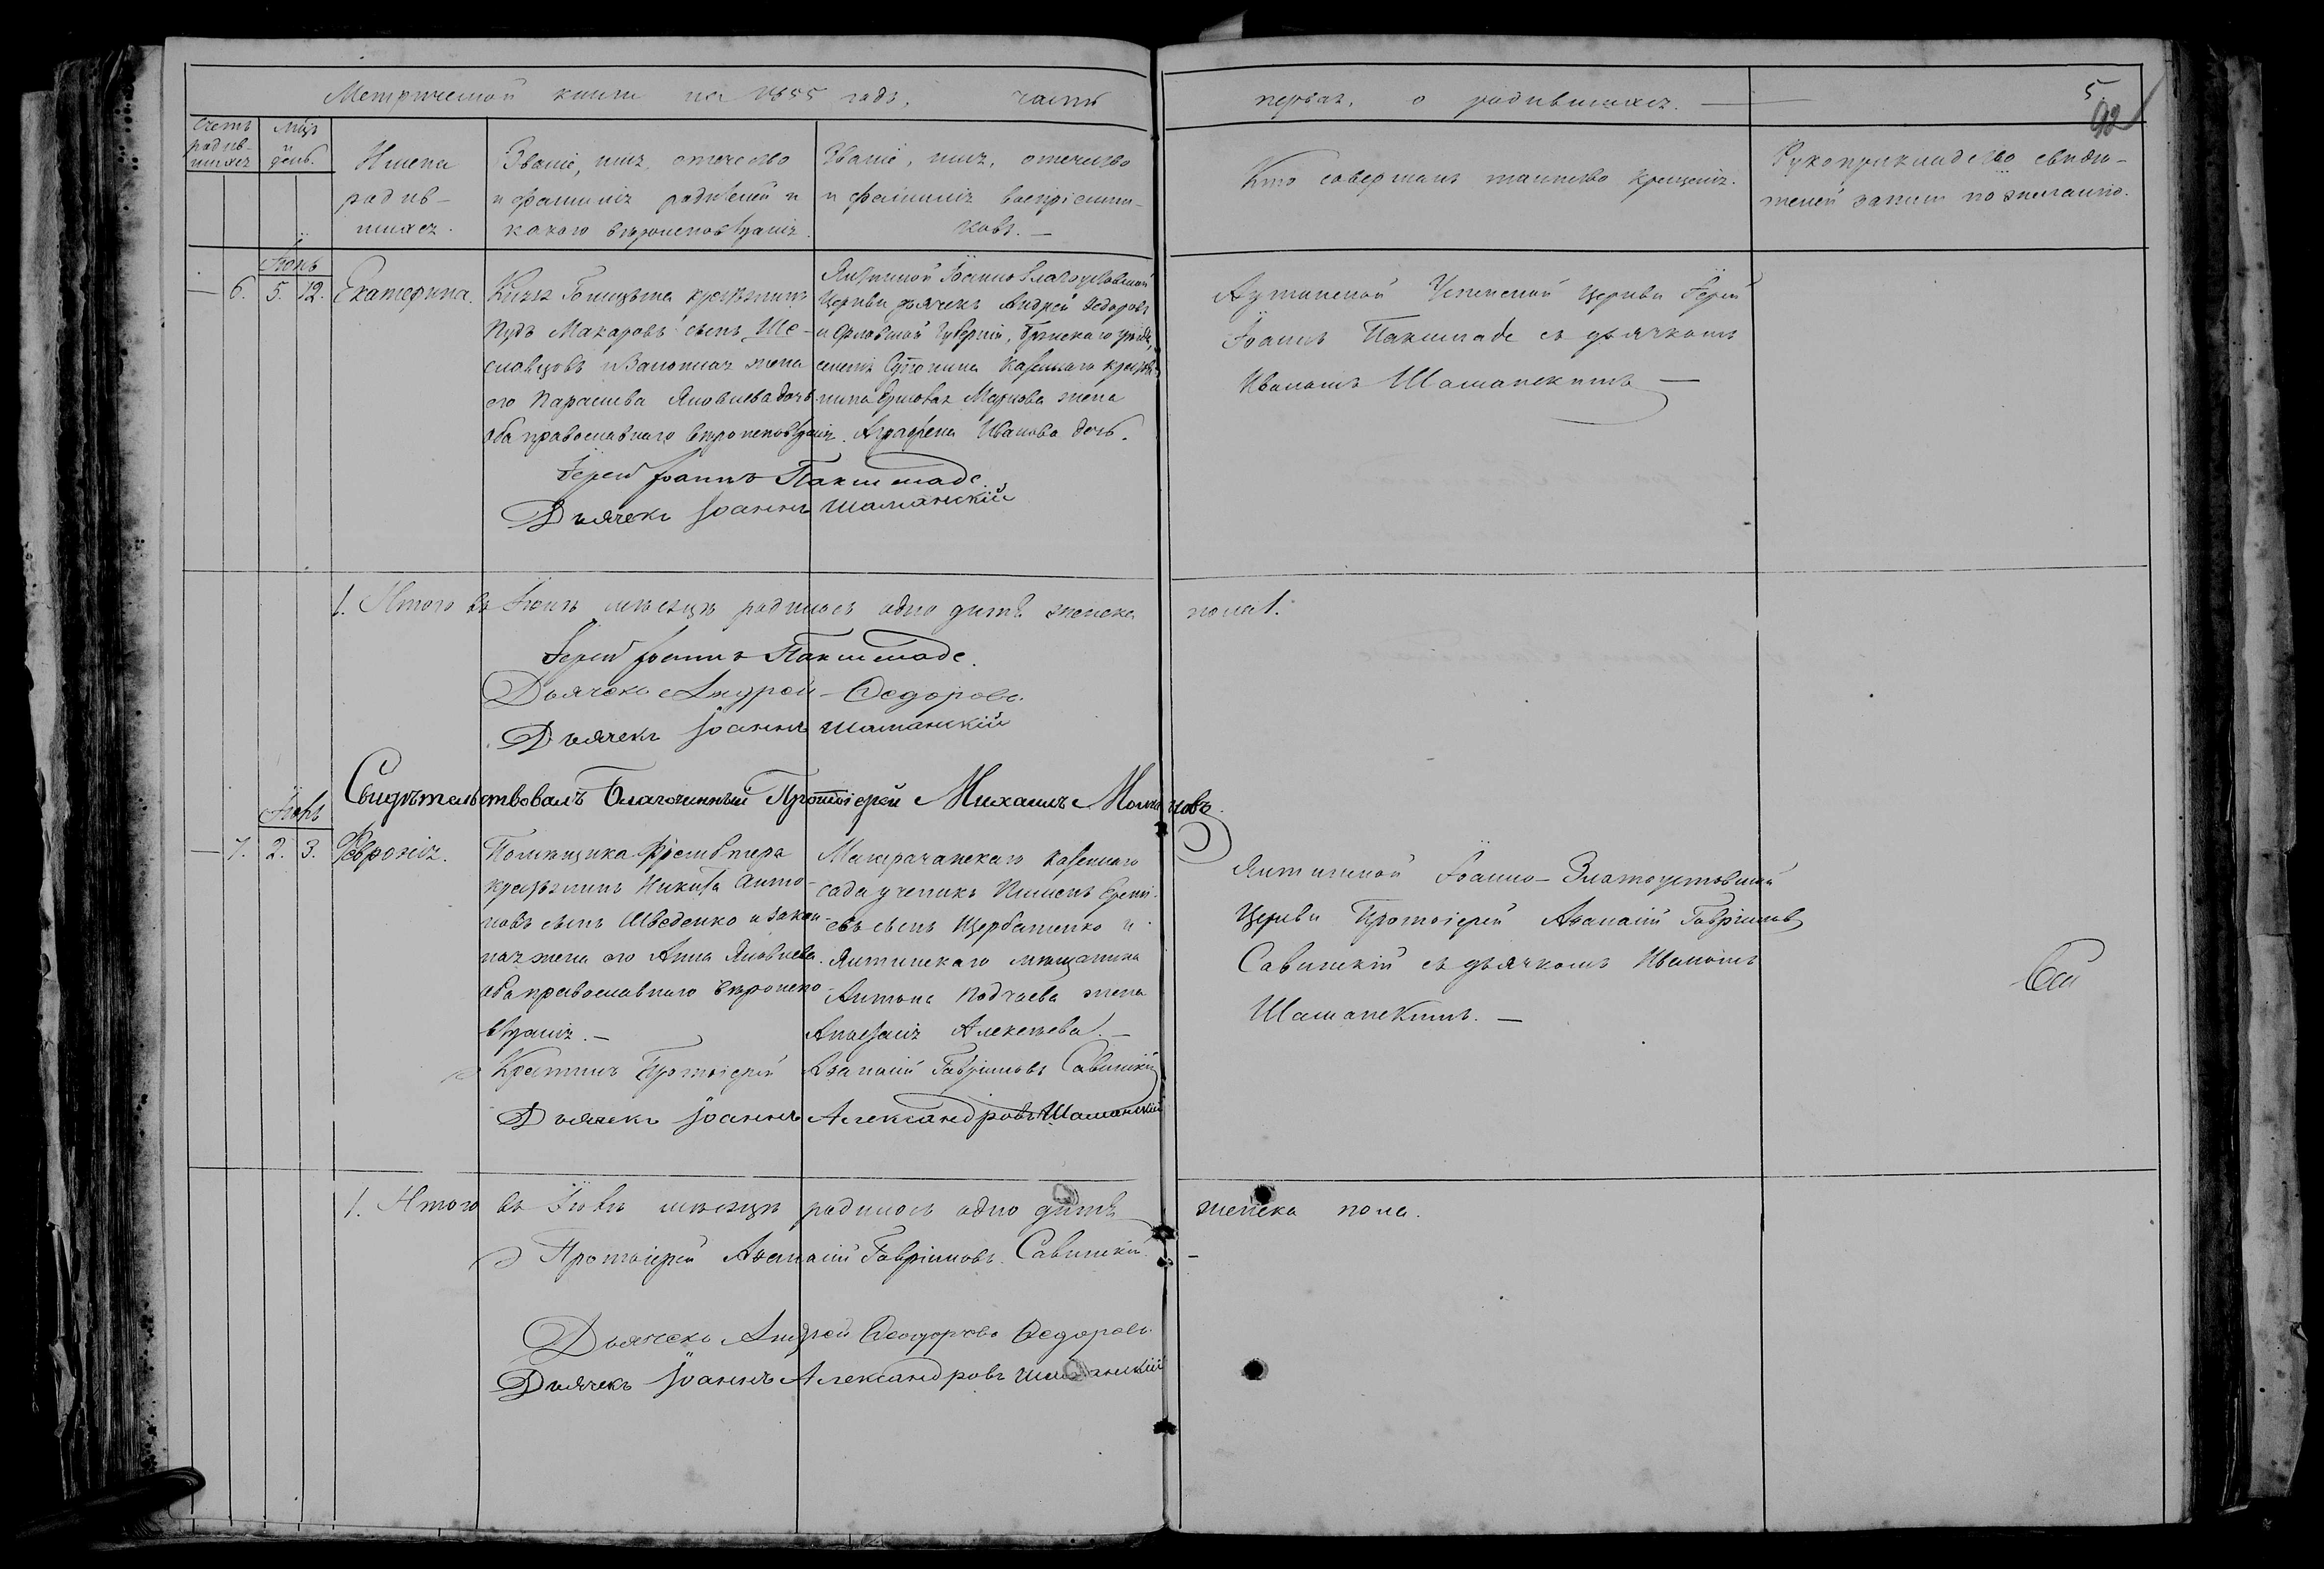 Метрической книги на 1855 годъ, часть первая, о родившихся.
5.
92
Счетъ родив-шихся
Мѣц. и день.
Имена
родив-
шихся.
Званіе, имя, отечество
и фамилія родителей и
какого вѣроисповѣданія.
Званіе, имя, отечество
и фамилія воспріемни-
ковъ. —
Кто совершалъ таинство крещенія.
Рукоприкладство свидѣ-
телей записи по желанію.
Іюнь
— 6. 5. 12. Екатерина.
Князя Голицына крестьянинъ
Пудъ Макаровъ сынъ Ше-
славцовъ и Законная жена
его Параскева Яковлева дочь
оба православнаго вѣроисповѣданія.
Ялтинской Іоанно-Златоустовской
Церкви дьячекъ Андрей Ѳедоровъ
и Орловской Губерніи, Брянскаго уѣзда,
казеннаго крестья-
нина Маркова жена
Аграфена Иванова дочь.
Аутинской Успенской Церкви Іерей
Іоаннъ Пакшмаде съ дьячкомъ
Иваномъ Шаманскимъ —
Іерей Іоаннъ Пакшмаде.
Дьячекъ Іоаннъ Шаманскій
1. Итого въ Іюнѣ мѣсяцѣ родилось одно дитя женска пола 1.
Іерей Іоаннъ Пакшмаде.
Дьячекъ Андрей Ѳедоровъ.
Дьячекъ Іоаннъ Шаманскій
Свидѣтельствовалъ Благочинный Протоіерей Михаилъ
Іюль
— 7. 2. 3. Февронія.
Помѣщика
крестьянинъ Никита Анто-
новъ сынъ Шведенко и закон-
ная жена его Анна Яковлева
оба православнаго вѣроиспо-
вѣданія. —
Магарачскаго казеннаго
сада ученикъ Пименъ
евъ сынъ Щербатенко и
Ялтинскаго мѣщанина
Антона Подчаева жена
Анастасія Алексѣева. —
Ялтинской Іоанно-Златоустовской
Церкви Протоіерей Аѳанасій Гавріиловъ
Савинскій съ дьячкомъ Иваномъ
Шаманскимъ. —
Крестилъ Протоіерей Аѳанасій Гавріиловъ Савинскій
Дьячекъ Іоаннъ Александровъ Шаманскій
1. Итого въ Іюлѣ мѣсяцѣ родилось одно дитя женска пола.
Протоіерей Аѳанасій Гавріиловъ Савинскій. —
Дьячекъ Андрей Ѳеодоровъ Ѳедоровъ
Дьячекъ Іоаннъ Александровъ Шаманскій